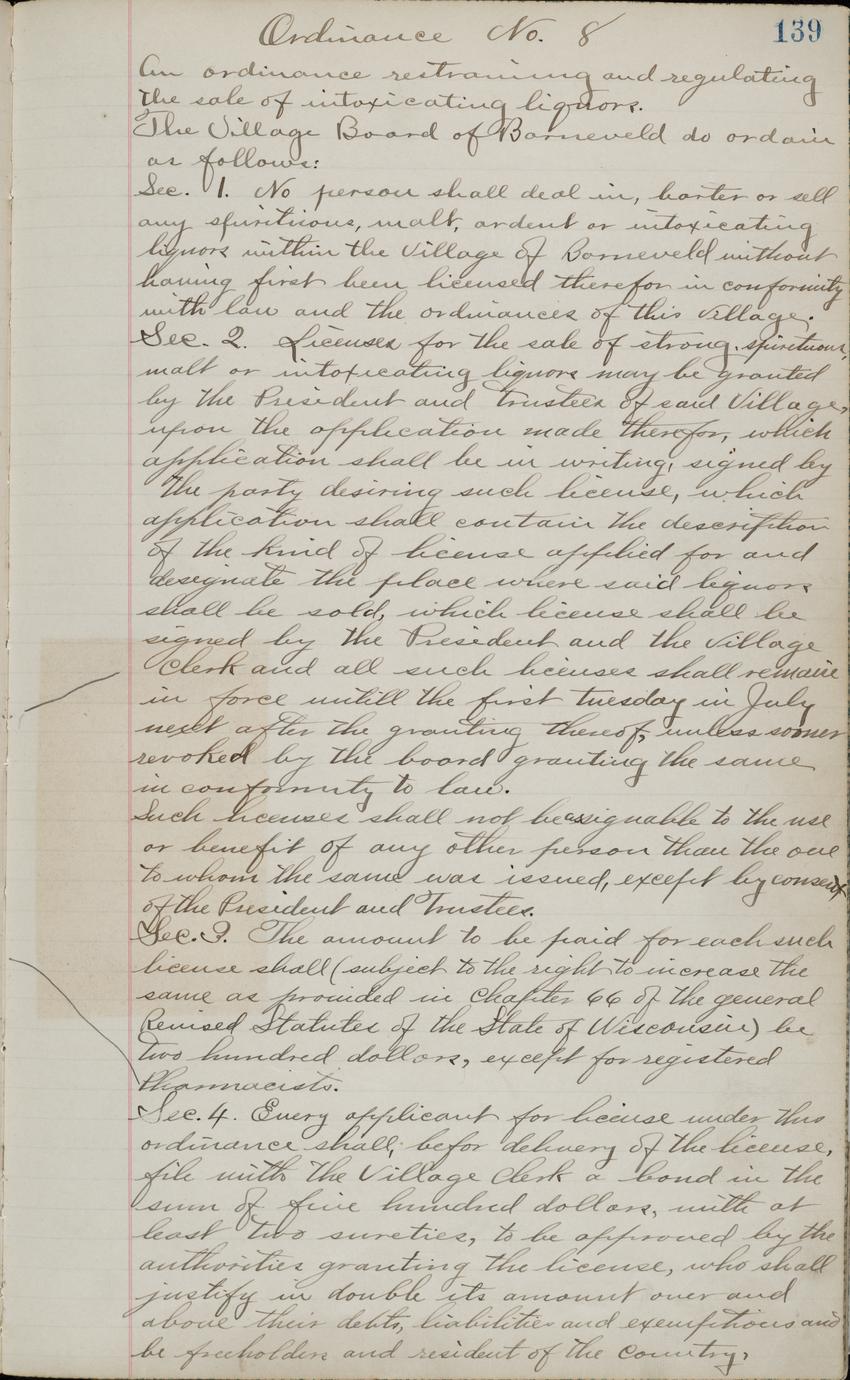 139
Ordinance No. 8
An ordinance restraining and regulating
the sale of intoxicating liquors.
The Village Board of Barneveld do ordain
as follows:
Sec. 1. No person shall deal in, barter or sell
any spirituous, malt, ardent or intoxicating
liquors within the Village of Barneveld without
having first been licensed therefor in conformity
with law and the ordinances of this Village.
Sec. 2. Licenses for the sale of strong, spirituous,
malt or intoxicating liquors may be granted
by the President and Trustees of said Village,
upon the application made therefor, which
application shall be in writing, signed by
the party desiring such license, which
application shall contain the description
of the kind of license applied for and
designate the place where said liquors
shall be sold, which license shall be
signed by the President and the Village
Clerk and all such licenses shall remain
in force untill the first Tuesday in July
next after the granting thereof, unless sooner
revoked by the board granting the same
in conformity to law.
Such licenses shall not be assignable to the use
or benefit of any other person than the one
to whom the same was issued, except by consent
of the President and Trustees.
Sec. 3. The amount to be paid for each such
license shall (subject to the right to increase the
same as provided in Chapter 66 of the general
Revised Statutes of the State of Wisconsin) be
Two hundred dollars, except for registered
Pharmacists.
Sec. 4. Every applicant for license under this
ordinance shall, befor delivery of the license,
file with the Village Clerk a bond in the
sum of five hundred dollars, with at
least two sureties, to be approved by the
authorities granting the license, who shall
justify in double its amount over and
above their debts, liabilities and exemptions and
be freeholders and resident of the Country,